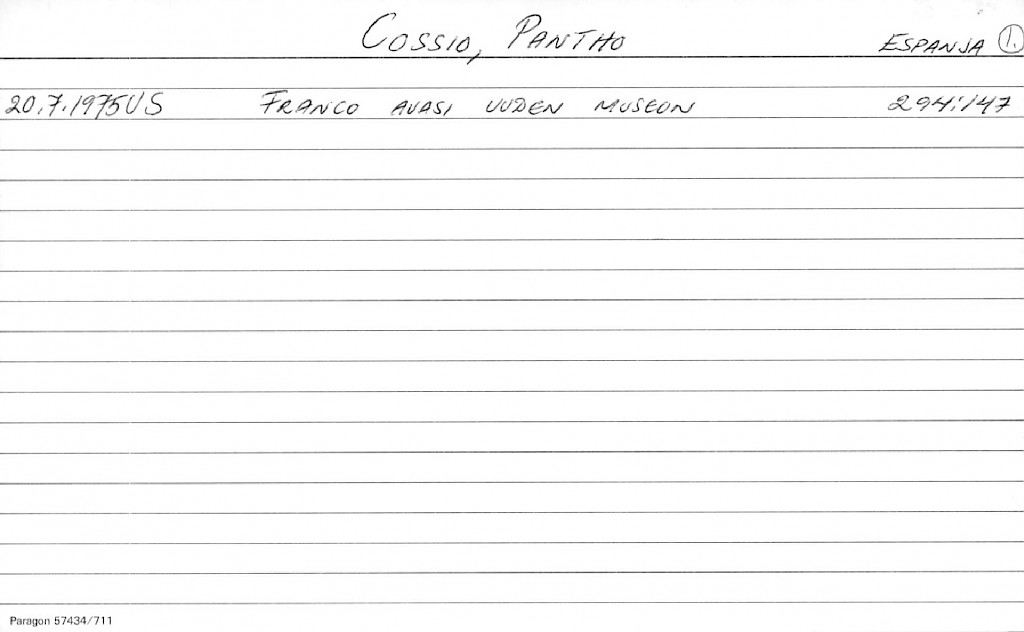 COSSIO, PANTHO ESPANJA 1.
20.7.1975 US FRANCO AVASI UUDEN MUSEON 294:147
Paragon 57434/711